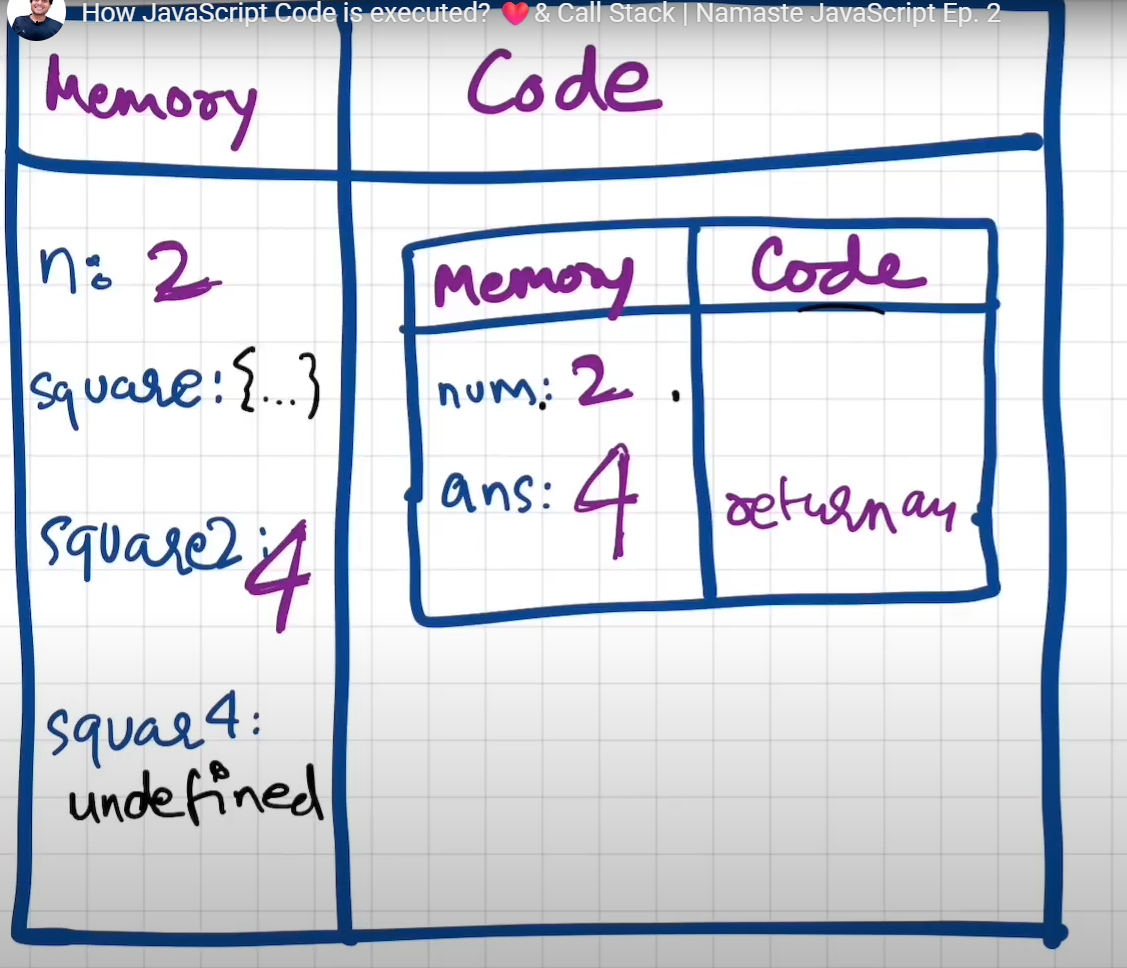 How JavaScript Code is executed? ❤️ & Call Stack | Namaste JavaScript Ep. 2
Memory Code
n: 2
square: {...}
square2: 4
squar4:
undefined
Memory Code
num: 2
ans: 4
return an